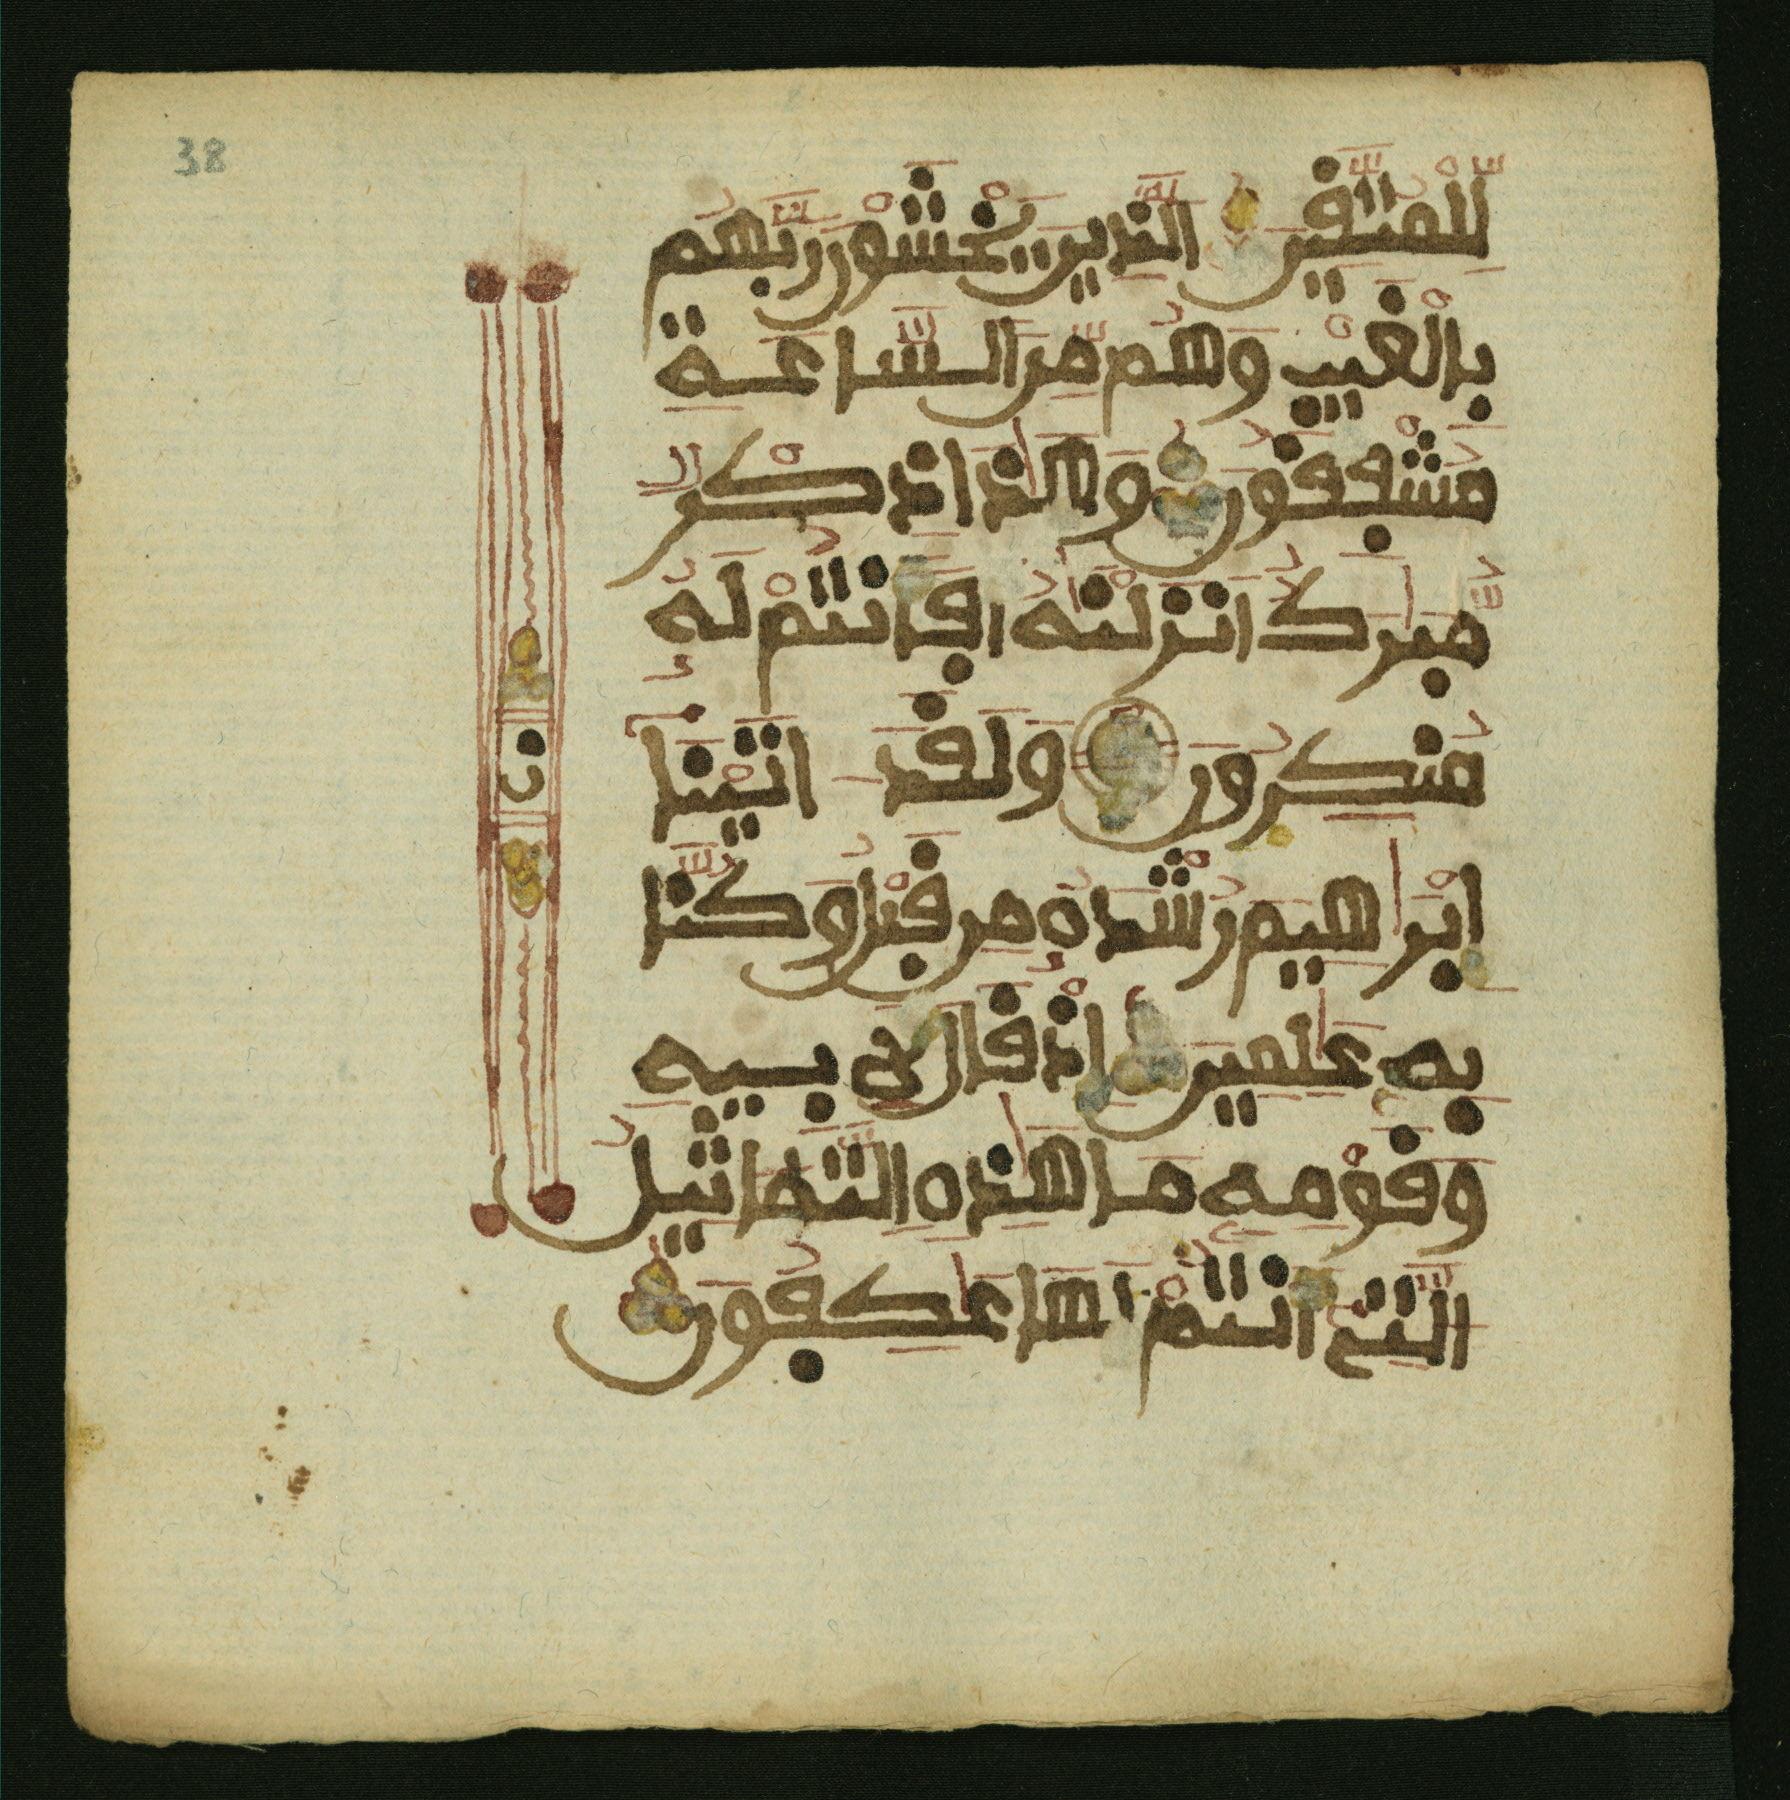 38
للمتقين الذين يخشون ربهم
بالغيب وهم من الساعة
مشفقون وهذا ذكر
مبرك انزلنه افانتم له
منكرون ولقد اتينا
ن
ابراهيم رشده من قبل وكنا
به علمين اذ قال لابيه
وقومه ما هذه التماثيل
التي انتم لها عكفون